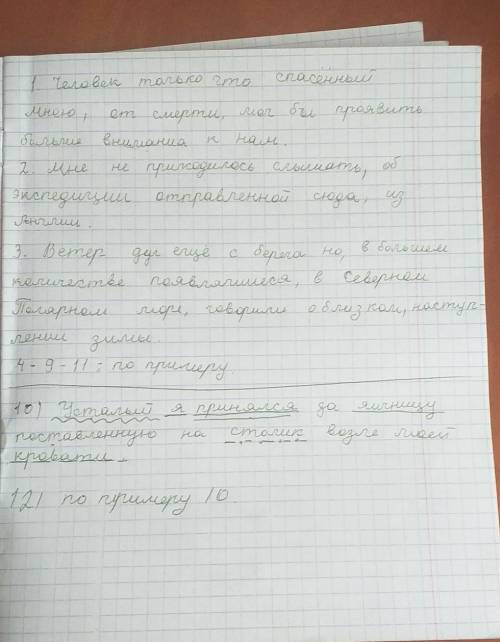 1. Человек только что спасённый
мною, от смерти, мог бы проявить
больше внимания к нам.
2. Мне не приходилось слышать, об
экспедиции отправленной сюда, из
Англии.
3. Ветер дул ещё с берега но, в большем
количестве появлявшиеся, в Северном
Полярном море, говорили о близком, наступ-
лении зимы.
4-9-11: по примеру.
10) Усталый я принялся за яичницу
поставленную на столик возле моей
кровати.
12) по примеру 10.